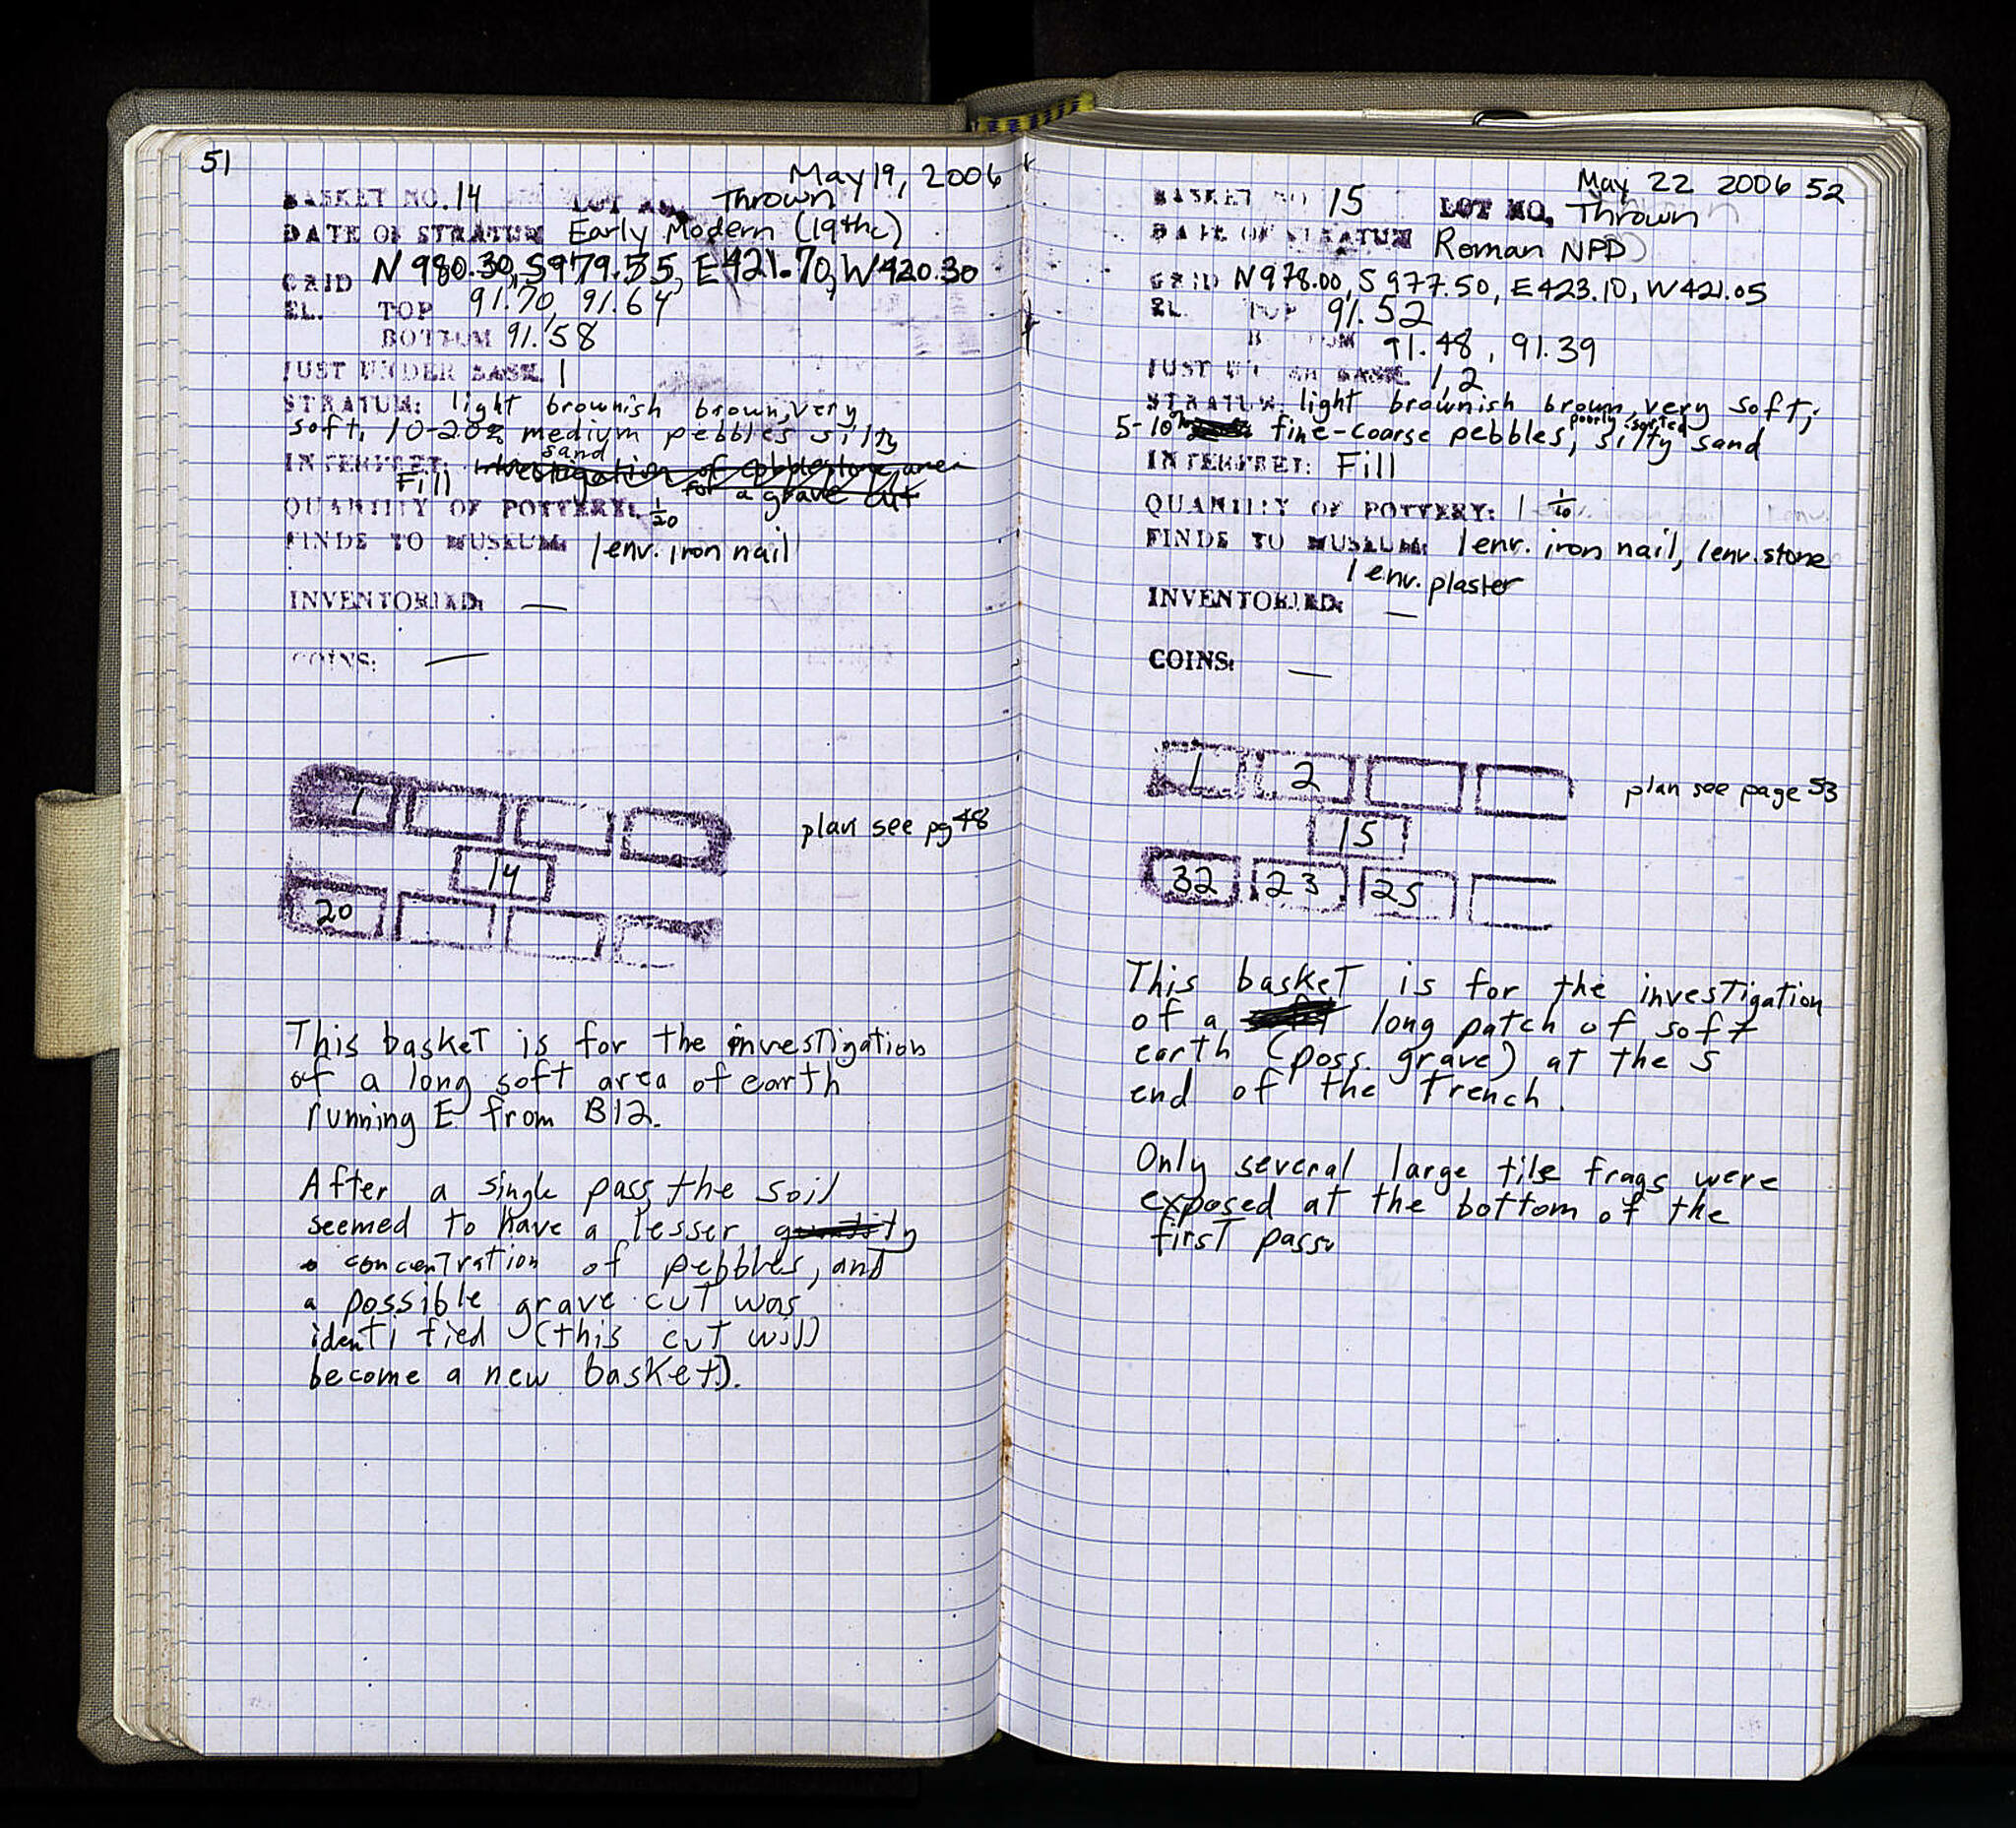 51
May 19, 2006
BASKET NO. 14 LOT NO. Thrown
DATE OF STRATUM Early Modern (19thc)
GRID N 980.30, S979.55, E421.70, W420.30
EL. TOP 91.70, 91.64
BOTTOM 91.58
JUST UNDER BASK. 1
STRATUM: light brownish brown, very
soft, 10-20% medium pebbles silty
sand
INTERPRET. investigation of cobblestone area
Fill for a grave cut
QUANTITY OF POTTERY: 1/20
FINDS TO MUSEUM: 1 env. iron nail
INVENTORIED: —
COINS: —
1
14
20
plan see pg 48
This basket is for the investigation
of a long soft area of earth
running E from B12.
After a single pass the soil
seemed to have a lesser quantity
concentration of pebbles, and
a possible grave cut was
identified (this cut will
become a new basket).
May 22 2006 52
BASKET NO 15 LOT NO. Thrown
DATE OF STRATUM Roman NPD
GRID N978.00, S 977.50, E423.10, W421.05
EL. TOP 91.52
BOTTOM 91.48, 91.39
JUST UNDER BASK. 1,2
STRATUM light brownish brown, very soft,
poorly sorted
5-10% fine-coarse pebbles, silty sand
INTERPRET: Fill
QUANTITY OF POTTERY: 1 1/10
FINDS TO MUSEUM: 1 env. iron nail, 1 env. stone
1 env. plaster
INVENTORIED: —
COINS: —
1 2
15
32 23 25
plan see page 53
This basket is for the investigation
of a long patch of soft
earth (poss. grave) at the S
end of the trench.
Only several large tile frags were
exposed at the bottom of the
first pass.